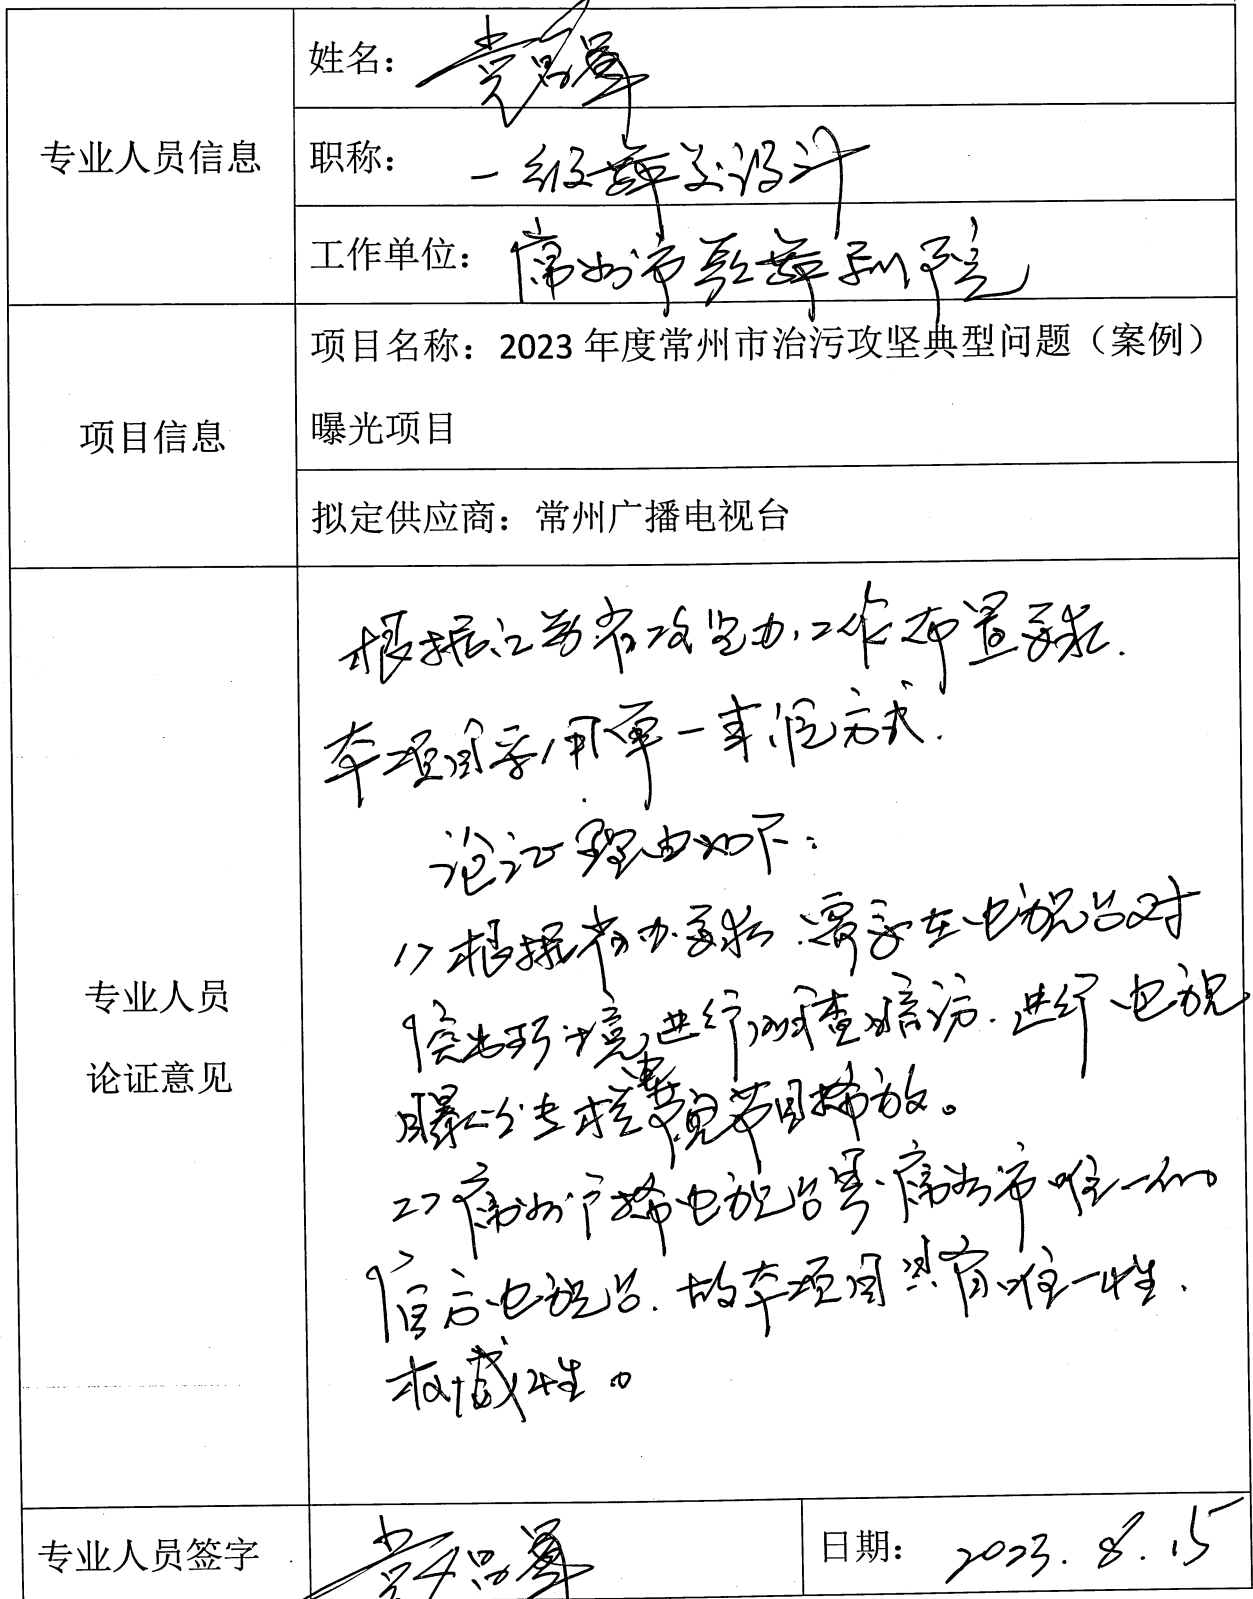 姓名：
专业人员信息
职称： 一级舞美设计
工作单位： 常州市歌舞剧院
项目名称：2023年度常州市治污攻坚典型问题（案例）
项目信息
曝光项目
拟定供应商：常州广播电视台
根据江苏省攻坚办工作布置要求.
本项目采用单一来源方式.
论证理由如下：
1>根据省办要求.需要在电视台对
突出环境进行调查暗访.进行电视
曝光 节目播放。
专业人员
论证意见
2>常州广播电视台是常州市唯一的
官方电视台.故本项目具有唯一性.
权威性。
专业人员签字 日期： 2023.8.15